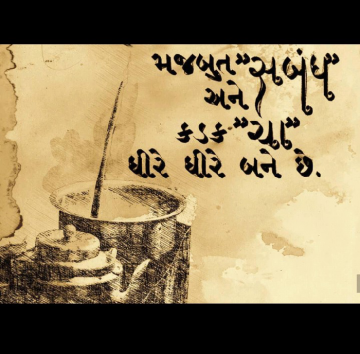 મજબુત "સબંધ"
અને
કડક "ચા"
ધીરે ધીરે બને છે.